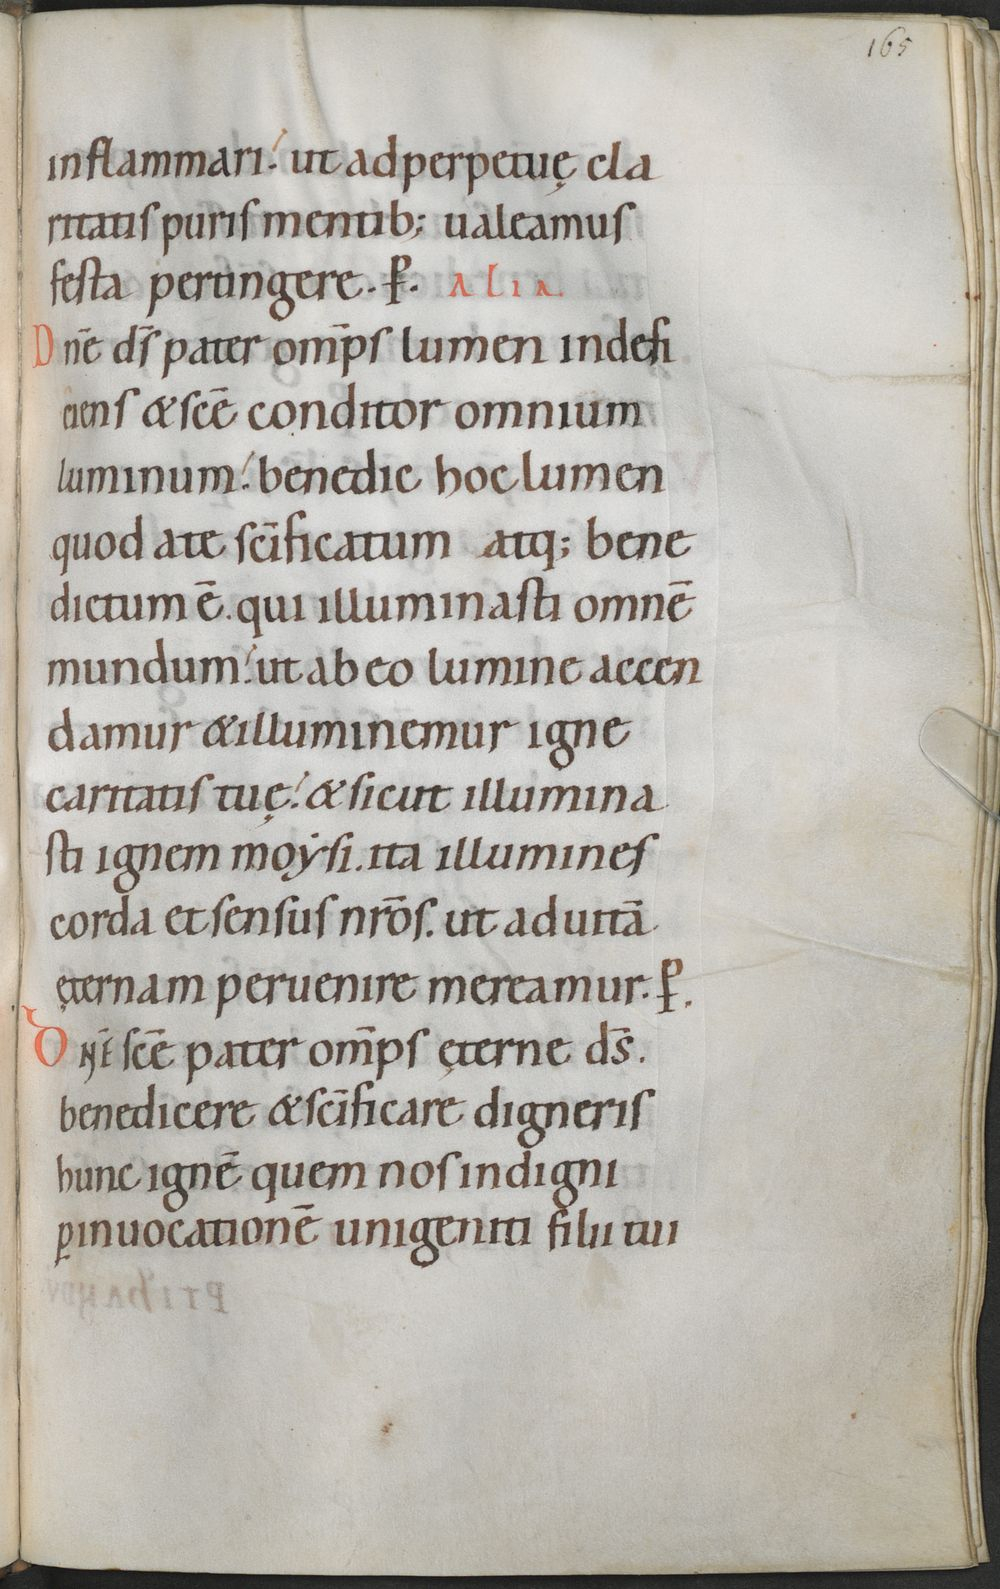 165
inflammari. ut adperpetuę cla
ritatis puris mentib; ualeamus
festa pertingere. P. alia
Dn̄e ds̄ pater om̄ps lumen indefi
ciens & sc̄e conditor omnium
luminum. benedic hoc lumen
quod ate sc̄ificatum atq; bene
dictum ē. qui illuminasti omnē
mundum. ut ab eo lumine accen
damur & illuminemur igne
caritatis tuę. & sicut illumina
sti ignem moẏsi. ita illumines
corda et sensus nr̄os. ut ad uitā
ęternam peruenire mereamur. P.
Dn̄e sc̄e pater om̄ps ęterne ds̄.
benedicere & sc̄ificare digneris
hunc ignē quem nos indigni
ꝑ inuocationē unigeniti filii tui